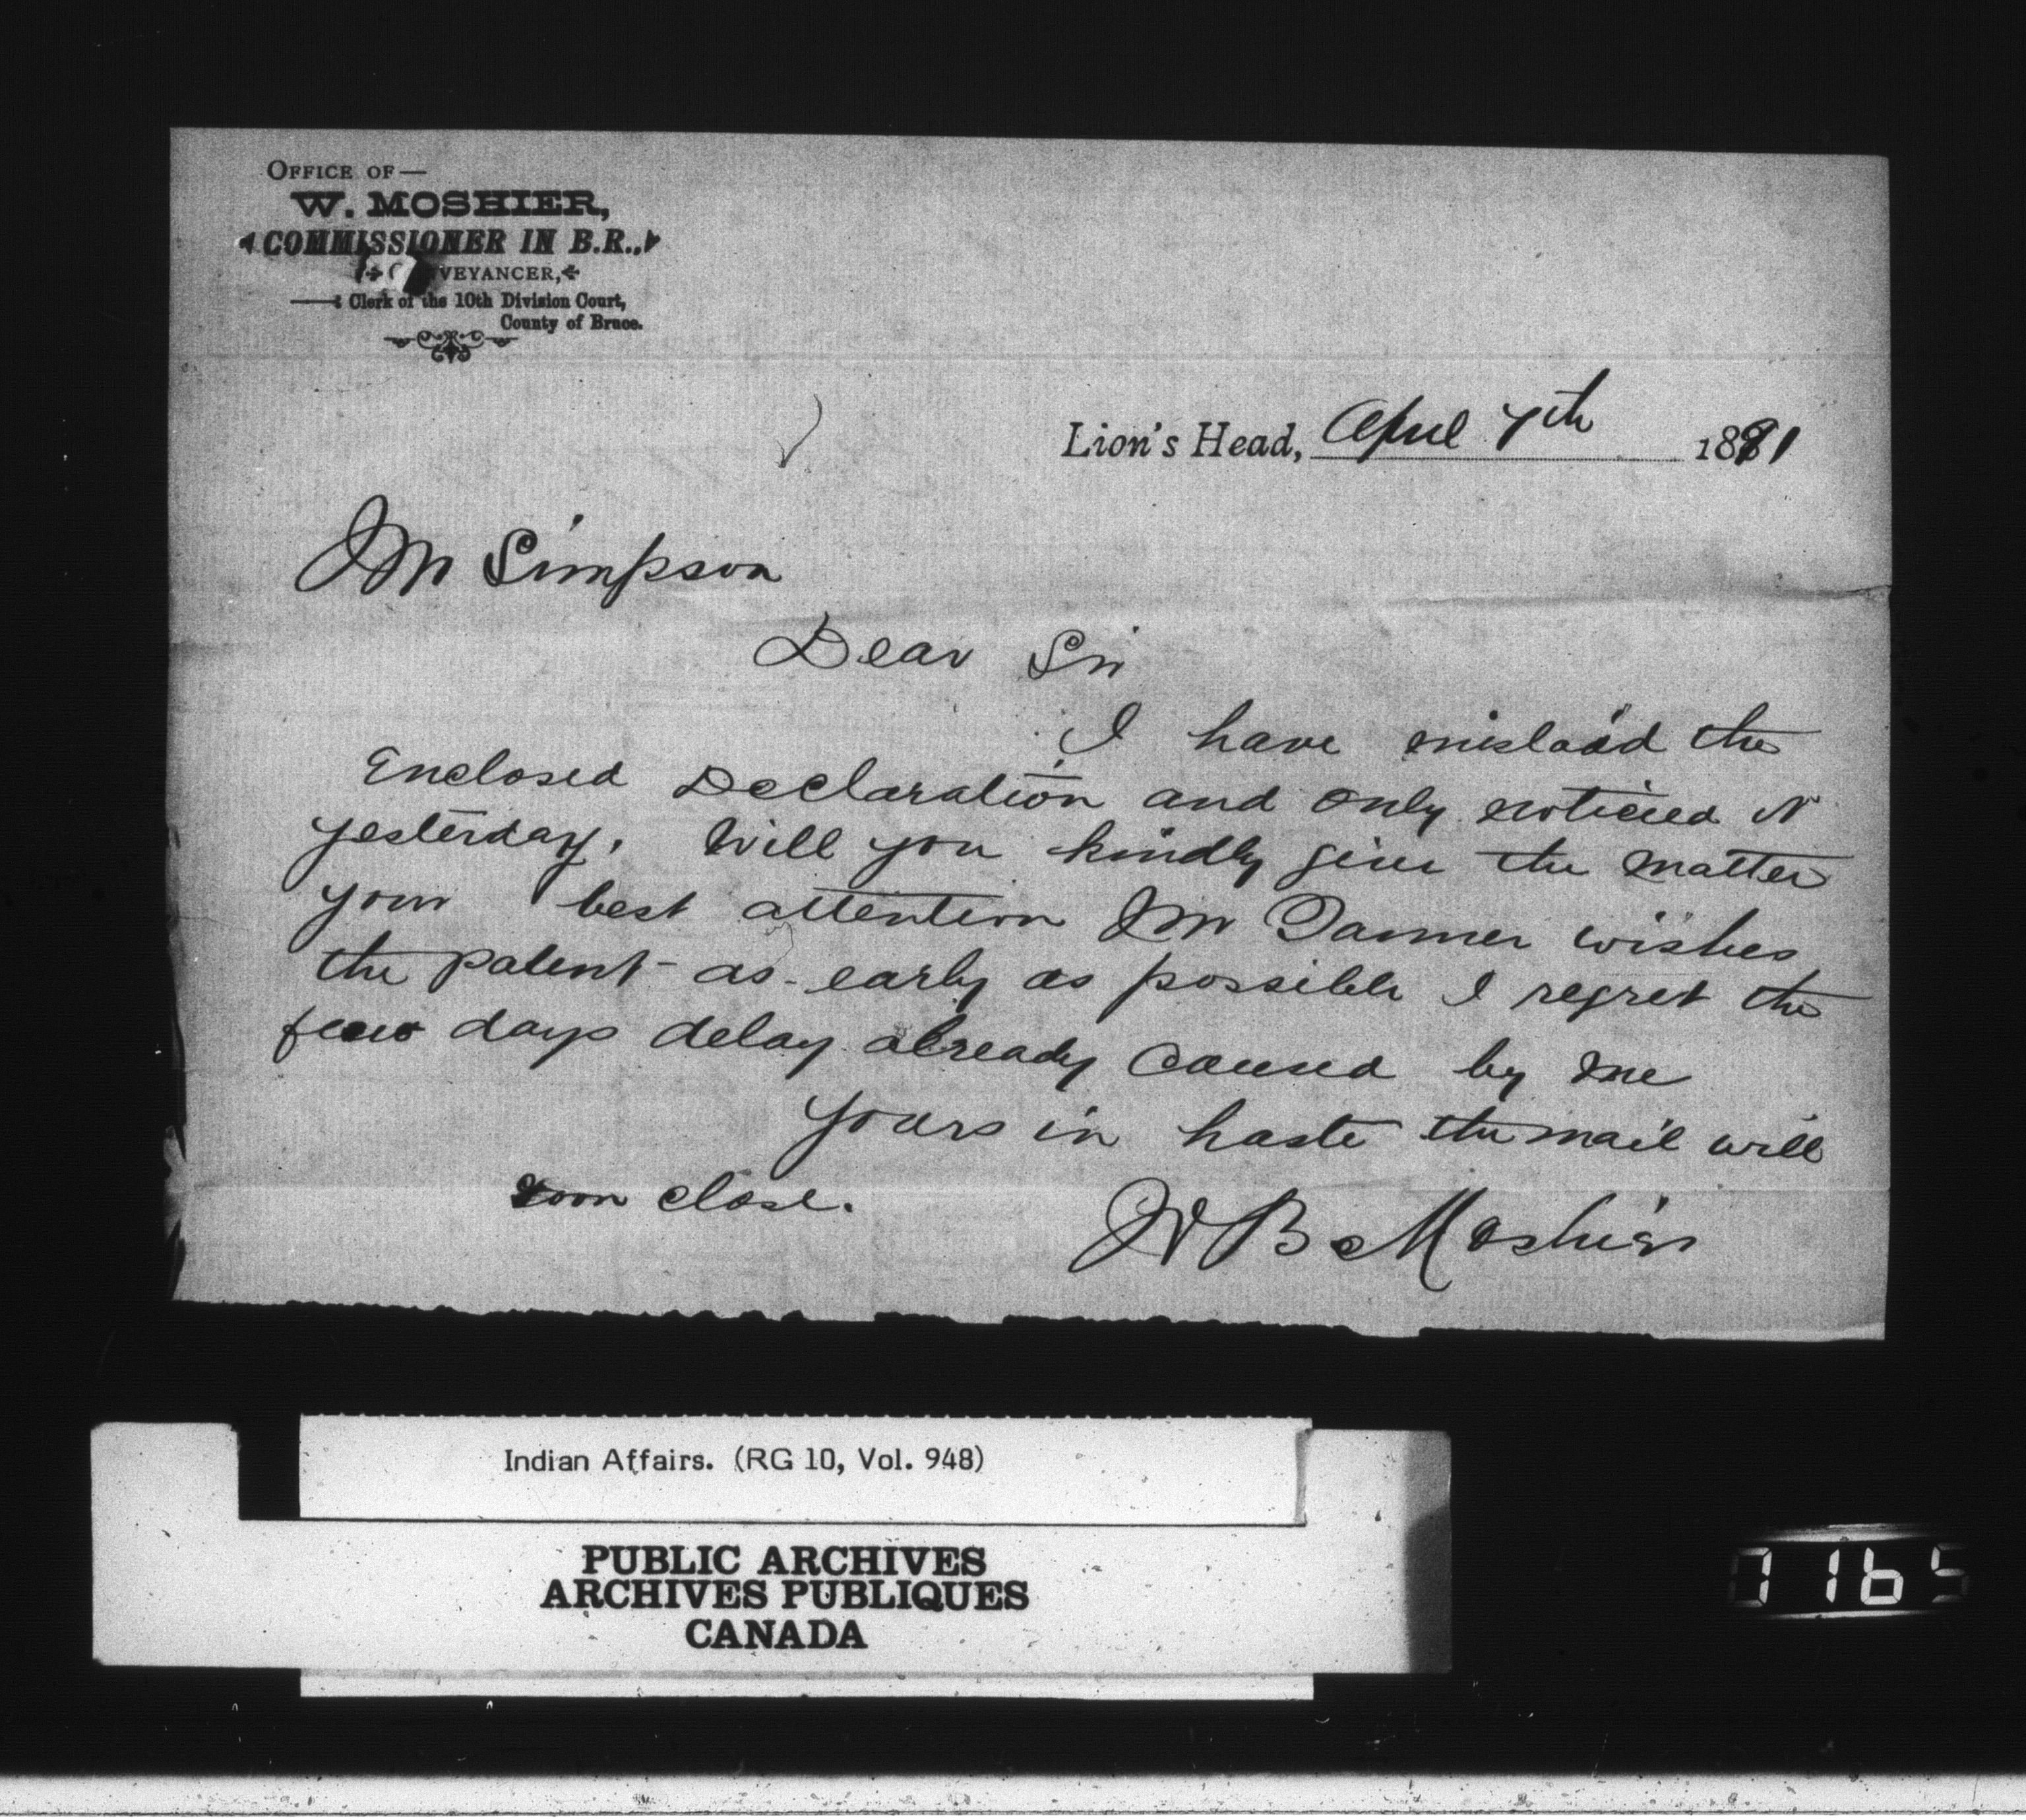 OFFICE OF—
W. MOSHIER,
COMMISSIONER IN B.R.,
VEYANCER,
Clerk of the 10th Division Court,
County of Bruce.
Lion's Head, April 7th 1891
Mr Simpson
Dear Sir
I have mislaid the
Enclosed Declaration and only noticed it
yesterday. Will you kindly give the matter
your best attention Mr Tanner wishes
the patent as early as possible I regret the
few days delay already caused by me
yours in haste the mail will
soon close.
W B Moshier
Indian Affairs. (RG 10, Vol. 948)
PUBLIC ARCHIVES
ARCHIVES PUBLIQUES
CANADA